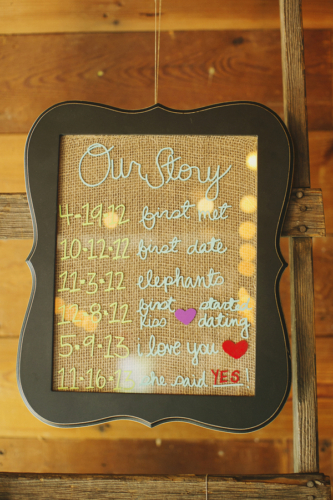 Our Story
4-19-12 first met
10-12-12 first date
11-3-12 elephants
12-8-12 first kiss started dating
5-9-13 i love you
11-16-16 she said YES!